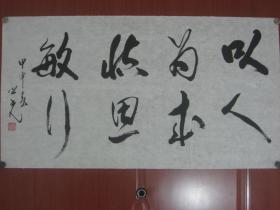 以人
为本
慎思
敏行
甲申